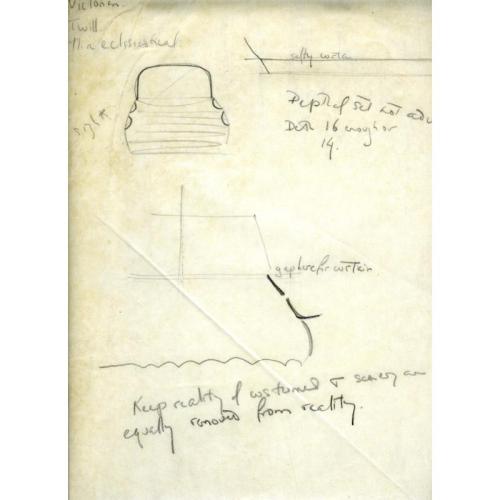 Victorian
Twill
safety curtain
Depth of set not
Depth 16 enough or
14.
gap here for curtain.
Keep reality of costume & scenery
equally removed from reality.